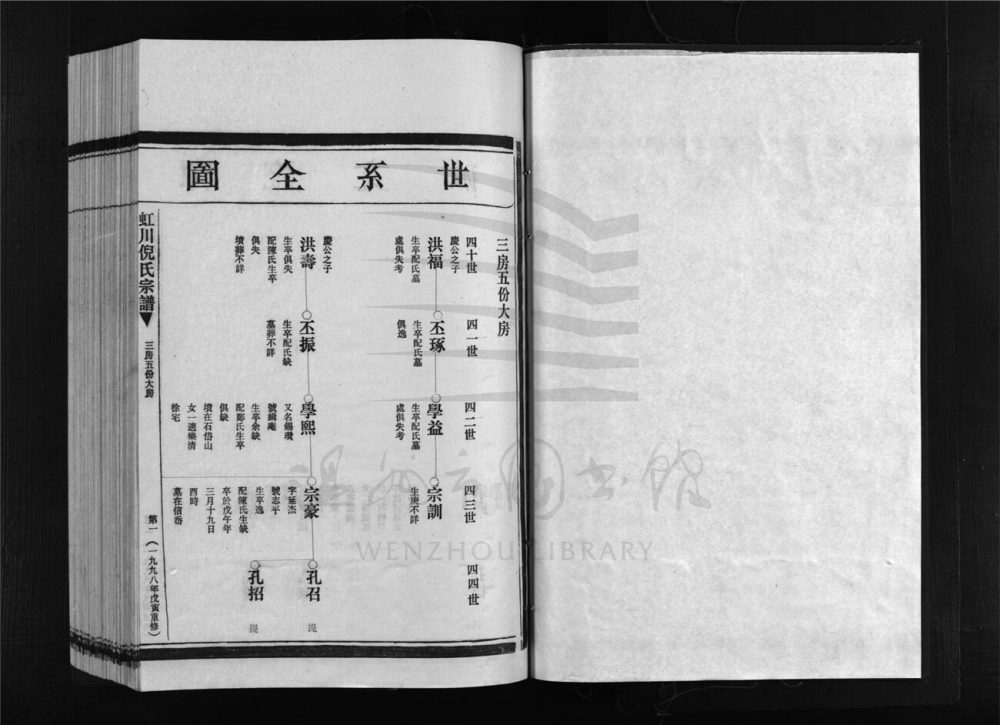 世系全圖
三房五份大房
四十世
四一世
四二世
四三世
四四世
慶公之子
洪福
生卒配氏墓
處俱失考
丕琢
生卒配氏墓
俱逸
學益
生卒配氏墓
處俱失考
宗訓
生庚不詳
慶公之子
洪壽
生卒俱失
配陳氏生卒
俱失
墳葬不詳
丕振
生卒配氏缺
墓葬不詳
學熙
又名錫瓚
號緝庵
生卒余缺
配鄭氏生卒
俱缺
墳在石岱山
女一適樂清
徐宅
宗豪
字延杰
號志平
生卒逸
配陳氏生缺
卒於戊午年
三月十九日
酉時
墓在信岙
孔召
提
孔招
提
虹川倪氏宗譜
三房五份大房
第一(一九九八年戊寅重修)
溫州市圖書館
WENZHOU LIBRARY